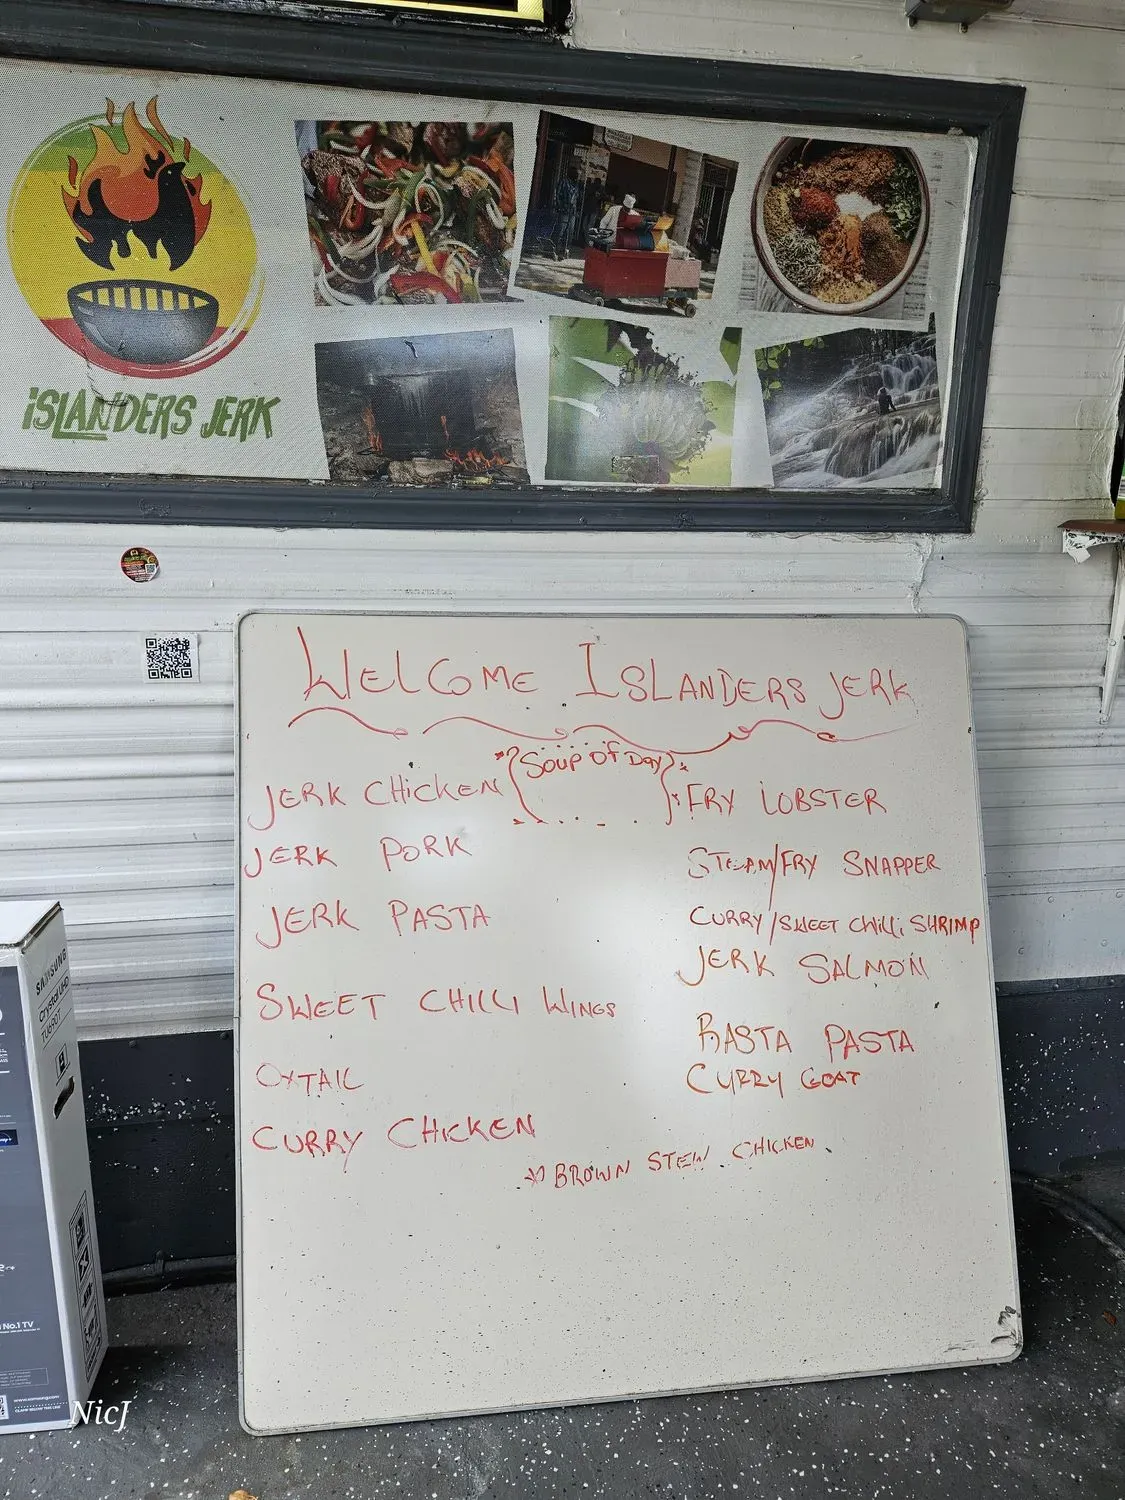 ISLANDERS JERK
WELCOME ISLANDERS JERK
SOUP OF DAY
JERK CHICKEN
JERK PORK
JERK PASTA
SWEET CHILLI WINGS
OXTAIL
CURRY CHICKEN
FRY LOBSTER
STEAM/FRY SNAPPER
CURRY/SWEET CHILLI SHRIMP
JERK SALMON
RASTA PASTA
CURRY GOAT
* BROWN STEW CHICKEN
SAMSUNG
Crystal UHD
TU690T
No.1 TV
www.samsung.com
NicJ